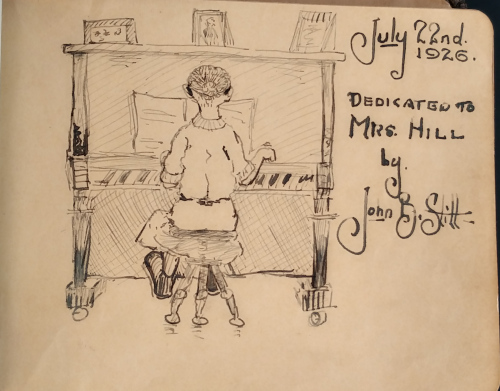 July 22nd.
1926.
DEDICATED TO
MRS. HILL
by.
John B. Stitt